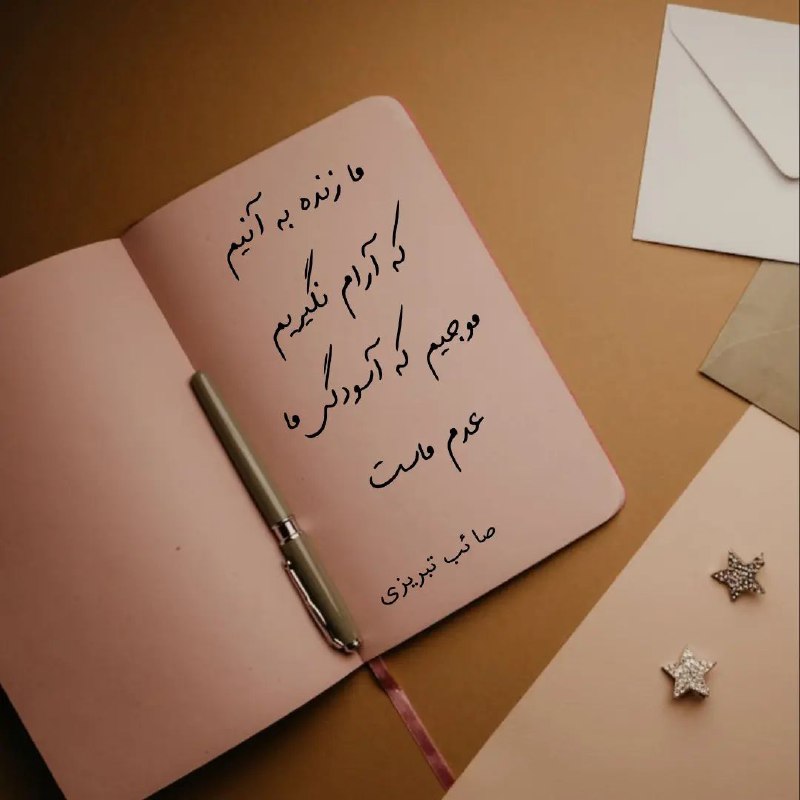 ما زنده به آنیم
که آرام نگیریم
موجیم که آسودگی ما
عدم ماست
صائب تبریزی